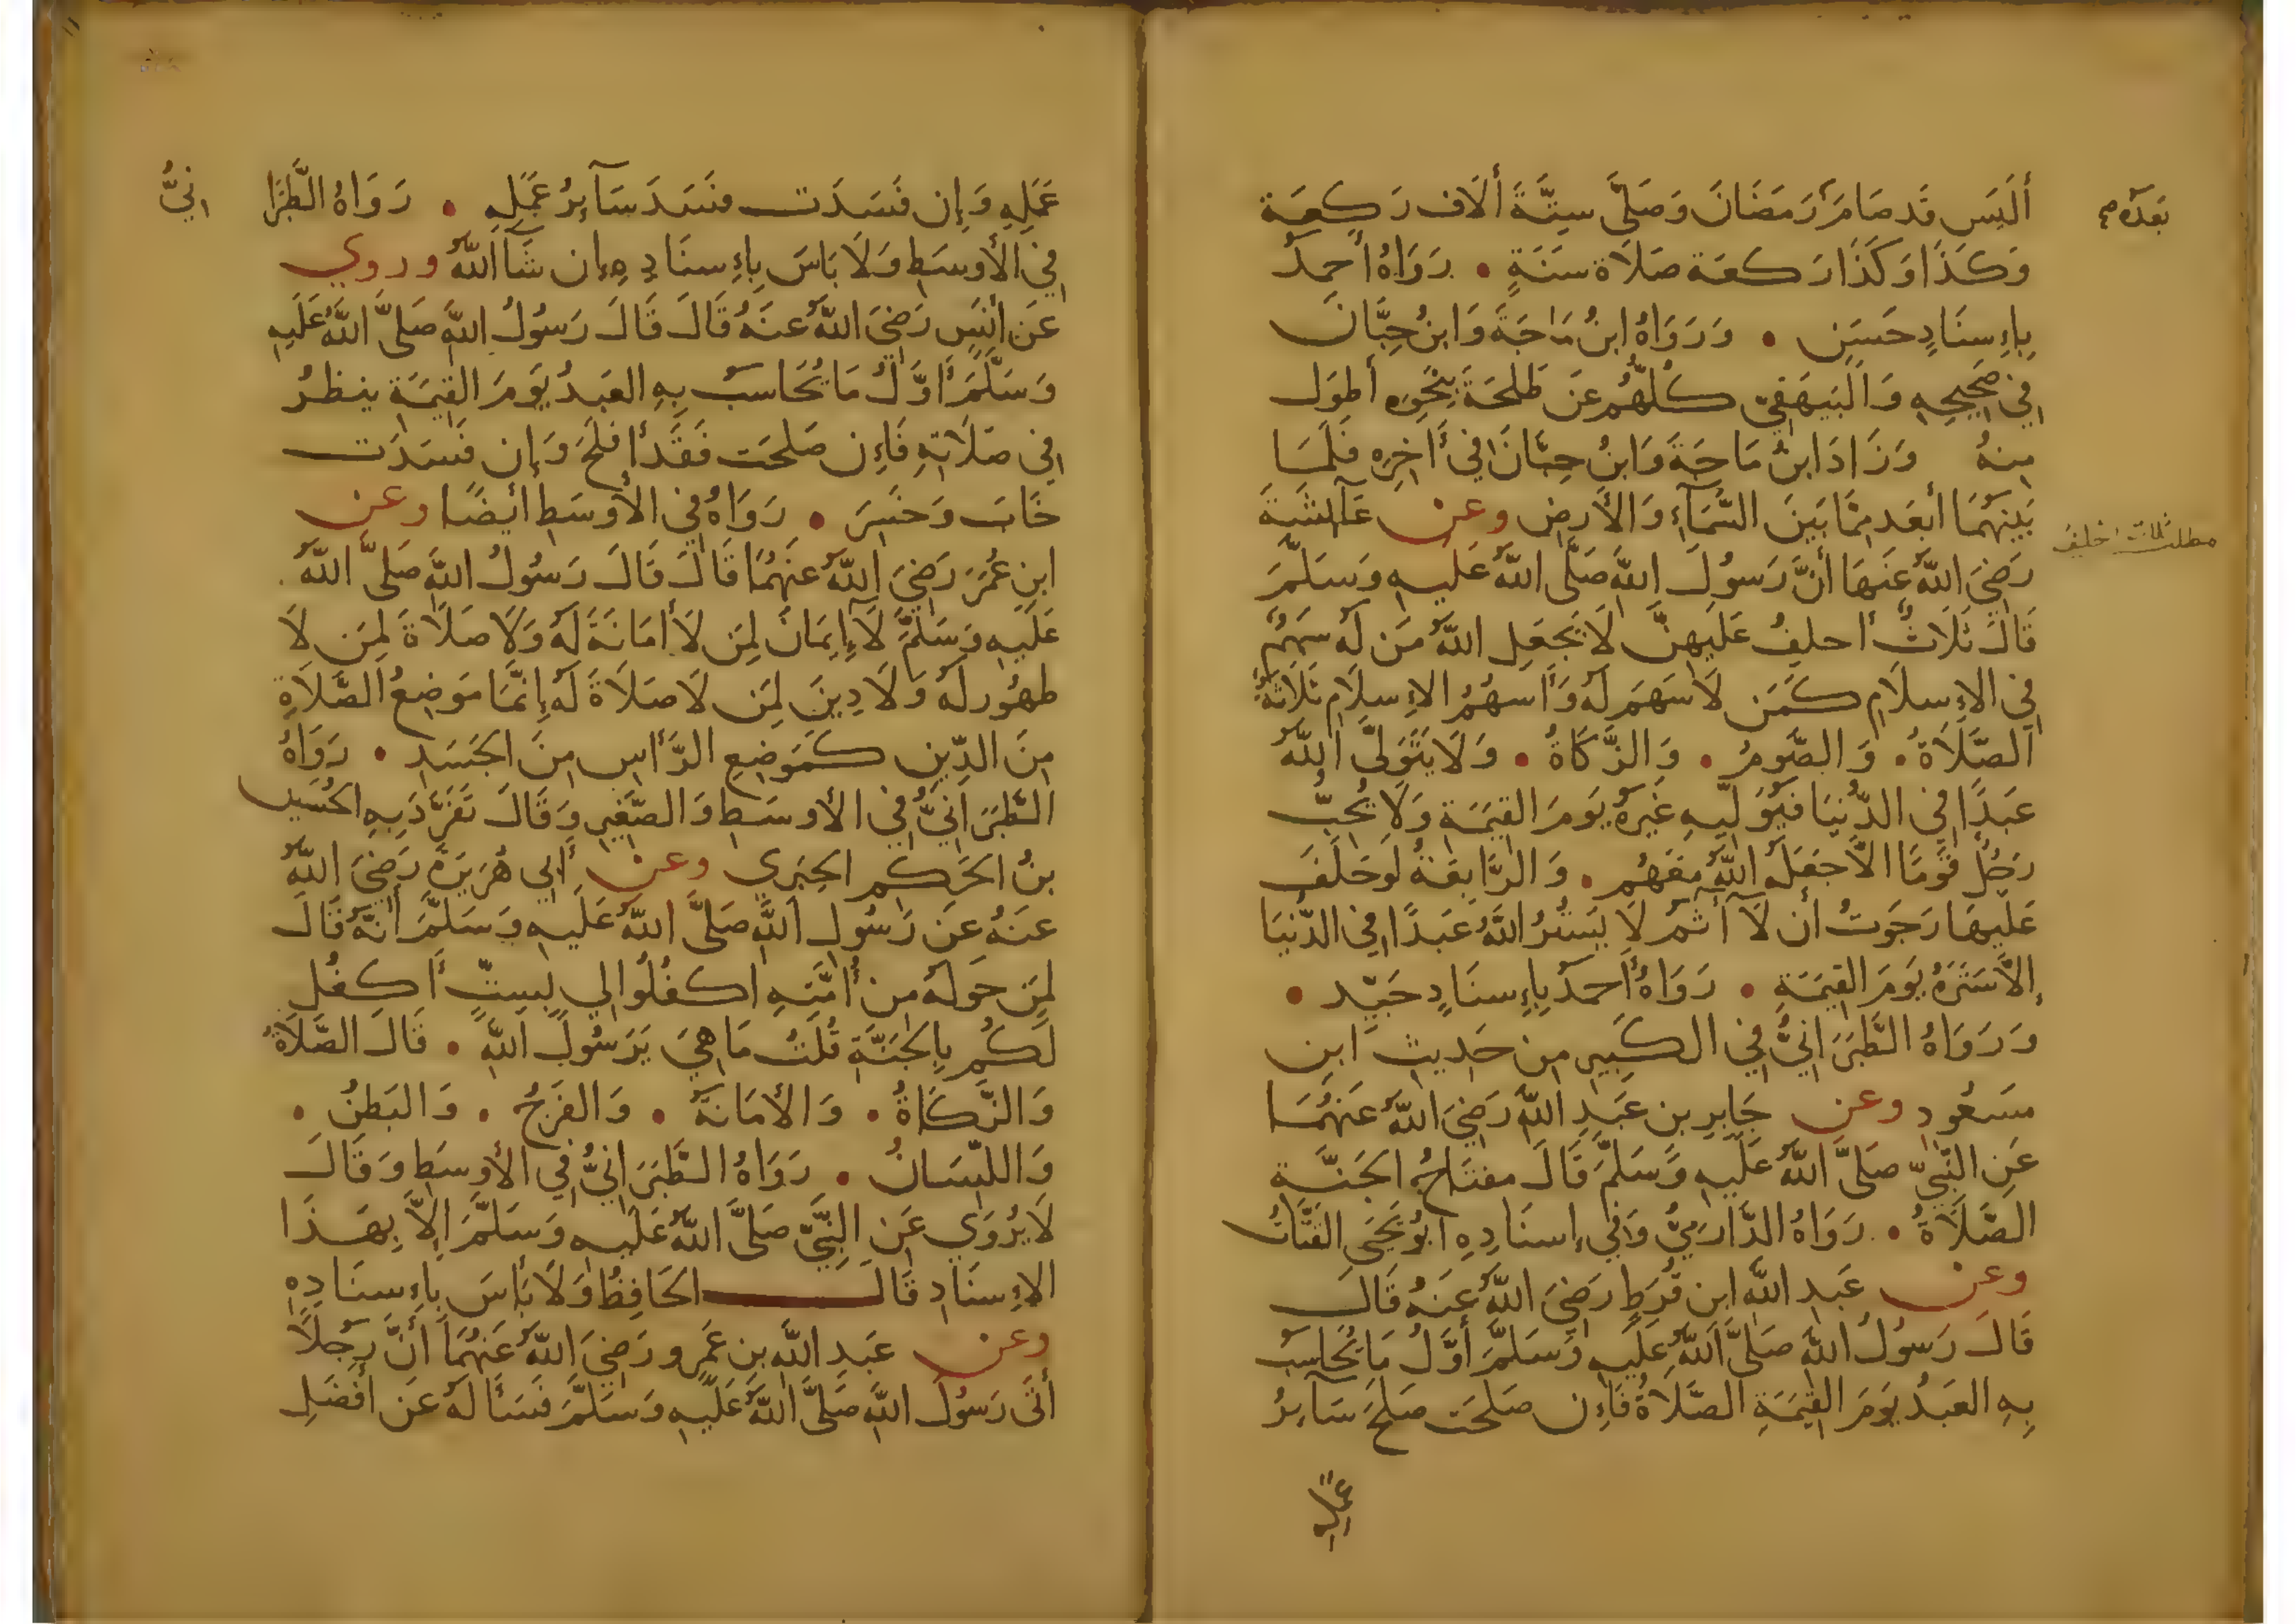 أَلَيسَ قَد صَامَ رَمَضَانَ وَصَلَّى سِتَّةَ أَلَاف رَكعَة
بَعدَهُ صح
وَكَذَا وَكَذَا رَكعَة صَلَاة سَنَةٍ • رَوَاهُ أَحمَدُ
بِإِسنَادٍ حَسَنٍ • وَرَوَاهُ ابنُ مَاجَةَ وَابنُ حِبَّانَ
فِي صَحِيحِهِ وَالبَيهَقِيّ كُلُّهُم عَن طَلحَةَ بِنَحوِهِ أَطوَل
مِنهُ وَزَادَ ابنُ مَاجَةَ وَابنُ حِبَّانَ فِي أَخِرِهِ فَلَمَا
بَينَهُمَا أَبعَد مِمَّا بَينَ السَّمَآءِ وَالأَرضِ وعن عَآئِشَةَ
مطلب ثلاث احلف
رَضِيَ اللَّهُ عَنهَا أَنَّ رَسُولَ اللَّهِ صَلَّى اللَّهُ عَلَيهِ وَسَلَّمَ
قَالَ ثَلَاثٌ أَحلِفُ عَلَيهِنَّ لَا يَجعَلِ اللَّهُ مَن لَهُ سَهمٌ
فِي الإِسلَامِ كَمَن لَا سَهمَ لَهُ وَأَسهُمُ الإِسلَامِ ثَلَاثَةٌ
الصَّلَاةُ • وَالصَّومُ • وَالزَّكَاةُ • وَلَا يَتَوَلَّى اللَّهُ
عَبدًا فِي الدُّنيَا فَيُوَلِّيهِ غَيرَهُ يَومَ القِيمَةِ وَلَا يُحِبّ
رَجُلٌ قَومًا الاَّ جَعَلَهُ اللَّهُ مَعَهُم • وَالرَّابِعَةُ لَو حَلَفتُ
عَلَيهَا رَجَوتُ أَن لَآ آثَم لَا يَستُرُ اللَّهُ عَبدًا فِي الدُّنيَا
إِلاَّ سَتَرَهُ يَومَ القِيمَةِ • رَوَاهُ أَحمَدُ بِإِسنَادٍ جَيّد •
وَرَوَاهُ الطَّبَرَانِيُّ فِي الكَبِيرِ مِن حَدِيثِ ابنِ
مسَعُودٍ وعن جَابِرِ بن عَبدِ اللَّهِ رَضِيَ اللَّهُ عَنهُمَا
عَنِ النَّبِيِّ صَلَّى اللَّهُ عَلَيهِ وَسَلَّمَ قَالَ مِفتَاحُ الجَنَّةِ
الصَّلَاةُ • رَوَاهُ الدَّارَمِيُّ وَفِي إِسنَادِهِ ابُو يَحيَى القَتَّاتُ
وعن عَبدِ اللَّهِ ابن قُرطٍ رَضِيَ اللَّهُ عَنهُ قَالَ
قَالَ رَسُولُ اللَّهِ صَلَّى اللَّهُ عَلَيهِ وَسَلَّمَ أَوَّلُ مَا يُحَاسَبُ
بِهِ العَبدُ يَومَ القِيمَةِ الصَّلَاةُ فَإِن صَلحَت صَلحَ سَآيِرُ
عَمَلِهِ
عَمَلِهِ وَإِن فَسَدَت فَسَدَ سَآيِرُ عَمَلِهِ • رَوَاهُ الطَّبَرَا نِيُّ
فِي الأَوسَطِ وَلَا بَاسَ بِإِسنَادِهِ إِن شَآ اللَّهُ وروي
عَن أَنَسٍ رَضِيَ اللَّهُ عَنهُ قَالَ قَالَ رَسُولُ اللَّهِ صَلَّى اللَّهُ عَلَيهِ
وَسَلَّمَ أَوَّلُ مَا يُحَاسَبُ بِهِ العَبدُ يَومَ القِيمَةِ ينظرُ
فِي صَلَاتِهِ فَإِن صَلحَت فَقَد أَفلَحَ وَإِن فَسَدَت
خَابَ وَخَسِرَ • رَوَاهُ فِي الأَوسَطِ أَيضًا وعن
ابنِ عُمَرَ رَضِيَ اللَّهُ عَنهُمَا قَالَ قَالَ رَسُولُ اللَّهِ صَلَّى اللَّهُ
عَلَيهِ وَسَلَّمَ لَآ إِيمَانَ لِمَن لَا أَمَانَةَ لَهُ وَلَا صَلَاةَ لِمَن لَا
طهُور لَهُ وَلَا دِينَ لِمَن لَا صَلَاةَ لَهُ إِنَّمَا مَوضِعُ الصَّلَاةِ
مِنَ الدِّينِ كَمَوضِعِ الرَّأسِ مِنَ الجَسَدِ • رَوَاهُ
الطَّبَرَانِيُّ فِي الأَوسَطِ وَالصَّغِيرِ وَقَالَ تَفَرَّدَ بِهِ الحُسَين
بنُ الحَكم الحِبَرِي وعن أَبِي هُرَيرَةَ رَضِيَ اللَّهُ
عَنهُ عَن رَسُولِ اللَّهِ صَلَّى اللَّهُ عَلَيهِ وَسَلَّمَ أَنَّهُ قَالَ
لِمَن حَولَهُ مِن أُمَّتِهِ اكفُلُوا لِي بِستٍّ أَكفُل
لَكُم بِالجَنَّةِ قُلتُ مَا هِيَ يَرَسُولَ اللَّهِ • قَالَ الصَّلَاةُ
وَالزَّكَاةُ • وَالأَمَانَةُ • وَالفَرجُ • وَالبَطنُ •
وَاللِّسَانُ • رَوَاهُ الطَّبَرَانِيُّ فِي الأَوسَطِ وَقَالَ
لَا يُروَي عَنِ النَّبِيِّ صَلَّى اللَّهُ عَلَيهِ وَسَلَّمَ اِلاَّ بِهَذَا
الإِسنَادِ قَالَ الحَافِظُ وَلَا بَأسَ بِإِسنَادِهِ
وعن عَبدِ اللَّهِ بنِ عَمرٍو رَضِيَ اللَّهُ عَنهُمَا أَنَّ رَجُلًا
أَتَى رَسُولَ اللَّهِ صَلَّى اللَّهُ عَلَيهِ وَسَلَّمَ فَسَأَلَهُ عَن أَفضَلِ